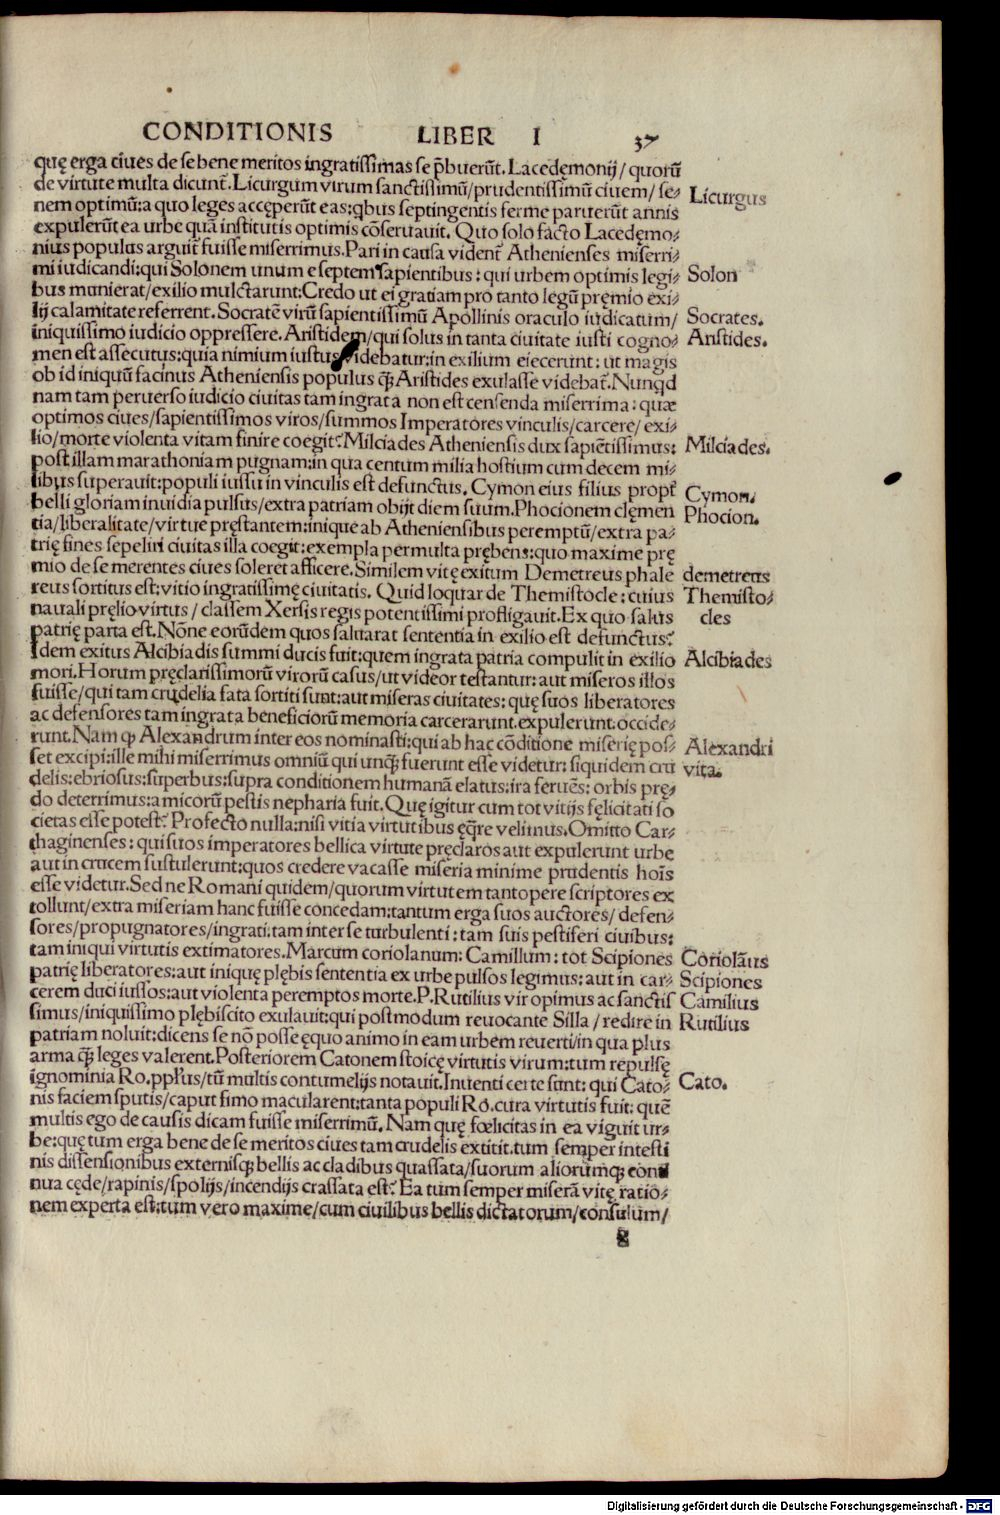 CONDITIONIS LIBER I 37
quę erga ciues de se bene meritos ingratissimas se p̄buerūt. Lacedęmonij/ quorū
de virtute multa dicunt̄. Licurgum virum sanctissimū/prudentissimū ciuem/ se- Licurgus
nem optimū:a quo leges accęperūt eas:qbus septingentis ferme paruerūt annis
expulerūt ea urbe quā institutis optimis cōseruauit. Quo solo facto Lacedęmo-
nius populus arguit̄ fuisse miserrimus. Pari in causa vident̄ Athenienses miserri-
mi iudicandi:qui Solonem unum e septem sapientibus: qui urbem optimis legi- Solon
bus munierat/exilio mulctarunt:Credo ut ei gratiam pro tanto legū pręmio exi-
lij calamitate referrent. Socratē virū sapientissimū Apollinis oraculo iudicatum/ Socrates.
iniquissimo iudicio oppressere. Aristidem/qui solus in tanta ciuitate iusti cogno- Aristides.
men est assecutus:quia nimium iustus videbatur:in exilium eiecerunt: ut magis
ob id iniquū facinus Atheniensis populus q̄ Aristides exulasse videbat̄. Nunqd
nam tam peruerso iudicio ciuitas tam ingrata non est censenda miserrima: quæ
optimos ciues/sapientissimos viros/summos Imperatores vinculis/carcere/ exi-
lio/morte violenta vitam finire coegit? Milciades Atheniensis dux sapiētissimus: Milciades.
post illam marathoniam pugnam:in qua centum milia hostium cum decem mi-
libus superauit:populi iussu in vinculis est defunctus. Cymon eius filius propt̄ Cymon.
belli gloriam inuidia pulsus/extra patriam obijt diem suum. Phocionem clęmen Phocion.
tia/liberalitate/virtue pręstantem:inique ab Atheniensibus peremptū/extra pa-
trię fines sepeliri ciuitas illa coegit:exempla permulta prębens:quo maxime prę
mio de se merentes ciues soleret afficere. Similem vitę exitum Demetreus phale demetreus
reus sortitus est:vitio ingratissimę ciuitatis. Quid loquar de Themistocle:cuius Themisto-
nauali pręlio virtus/ classem Xersis regis potentissimi profligauit. Ex quo salus cles
patrię parta est. Nōne eorūdem quos saluarat sententia in exilio est defunctus?
Idem exitus Alcibiadis summi ducis fuit:quem ingrata patria compulit in exilio Alcibiades
mori. Horum pręclarissimorū virorū casus/ut videor testantur: aut miseros illos
fuisse/qui tam crudelia fata sortiti sunt:aut miseras ciuitates: quę suos liberatores
ac defensores tam ingrata beneficiorū memoria carcerarunt.expulerunt:occide-
runt. Nam q̇ Alexandrum inter eos nominasti:qui ab hac cōditione miserię pos- Alexandri
set excipi:ille mihi miserrimus omniū qui unq̄ fuerunt esse videtur: siquidem cru vita.
delis:ebriosus:superbus:supra conditionem humanā elatus:ira feruēs: orbis prę-
do deterrimus:amicorū pestis nepharia fuit. Quę igitur cum tot vitijs fęlicitati so
cietas esse potest? Profecto nulla:nisi vitia virtutibus ęq̄re velimus. Omitto Car-
thaginenses: qui suos imperatores bellica virtute pręclaros aut expulerunt urbe
aut in crucem sustulerunt:quos credere vacasse miseria minime prudentis hoīs
esse videtur. Sed ne Romani quidem/quorum virtutem tantopere scriptores ex
tollunt/extra miseriam hanc fuisse concedam:tantum erga suos auctores/ defen-
sores/propugnatores/ingrati:tam inter se turbulenti: tam suis pestiferi ciuibus:
tam iniqui virtutis extimatores. Marcum coriolanum: Camillum: tot Scipiones Coriolāus
patrię liberatores:aut inique plębis sententia ex urbe pulsos legimus: aut in car- Scipiones
cerem duci iussos:aut violenta peremptos morte. P. Rutilius vir opimus ac sanctis Camilius
simus/iniquissimo plębiscito exulauit:qui postmodum reuocante Silla/ redire in Rutilius
patriam noluit:dicens se nō posse ęquo animo in eam urbem reuerti/in qua plus
arma q̄ leges valerent. Posteriorem Catonem stoicę virtutis virum:tum repulsę
ignominia Ro. pplus/tū multis contumelijs notauit. Inuenti certe sunt: qui Cato- Cato.
nis faciem sputis/caput fimo macularent:tanta populi Ro. cura virtutis fuit: quē
multis ego de causis dicam fuisse miserrimū. Nam quę fœlicitas in ea viguit ur-
be:quę tum erga bene de se meritos ciues tam crudelis extitit.tum semper intesti
nis dissensionibus externisq; bellis ac cladibus quassata/suorum aliorumq; conti
nua cęde/rapinis/spolijs/incendijs crassata est? Ea tum semper miserā vitę ratio-
nem experta est:tum vero maxime/cum ciuilibus bellis dictatorum/consulum/
g
Digitalisierung gefördert durch die Deutsche Forschungsgemeinschaft - DFG